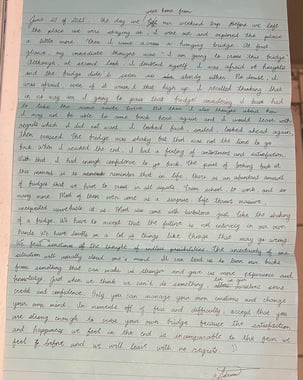 year home from
June 21 of 2021. the day we left our weekend trip. Before we left
the place we were staying at, I went out and explored the place
a little more. Then I came across a hanging bridge. At first
glance, my immediate thought was "I am going to cross this bridge".
Although, at second look, I doubted myself. I was afraid of heights
and the bridge didn't seem so sturdy either. No doubt, I
was afraid, even if it wasn't that high up, I recalled thinking that
in no way am I going to cross that bridge, considering I have had
to take the same when But then I also thought about how
I may not be able to come back here again and I would leave with
regrets which I did not want. I looked back, smiled, looked ahead again,
Then crossed. The bridge was shaky but that was not the time to go
back. When I reached the end, I had a feeling of contentment and satisfaction.
With that, I had enough confidence to go back. The point of looking back at
this moment is to remember that in life, there is an abundant amount
of bridges that we have to cross in all aspects. From school, to work, and so
many more. Most of them even come as a surprise. Life throws massive,
unexpected curveballs at us. Most also come with turbulence just like the shaking
of a bridge. We have to accept that the future is not entirely in our own
hands. We have doubts in a lot of things like things that may go wrong.
We fear the thought of endless possibilities. The uncertainty of one
situation will usually cloud one's mind. It can lead us to turn our backs
from something that can make us stronger and give us more experience and
knowledge. Just when we think we can't do something, let us give ourselves some
credit and confidence. Only you can manage your own emotions and change
your own mind. In moments of fear and difficulty, accept that you
are strong enough to cross your own bridge because the satisfaction
and happiness we feel in the end is incomparable to the fear we
feel before and we will leave with no regrets.